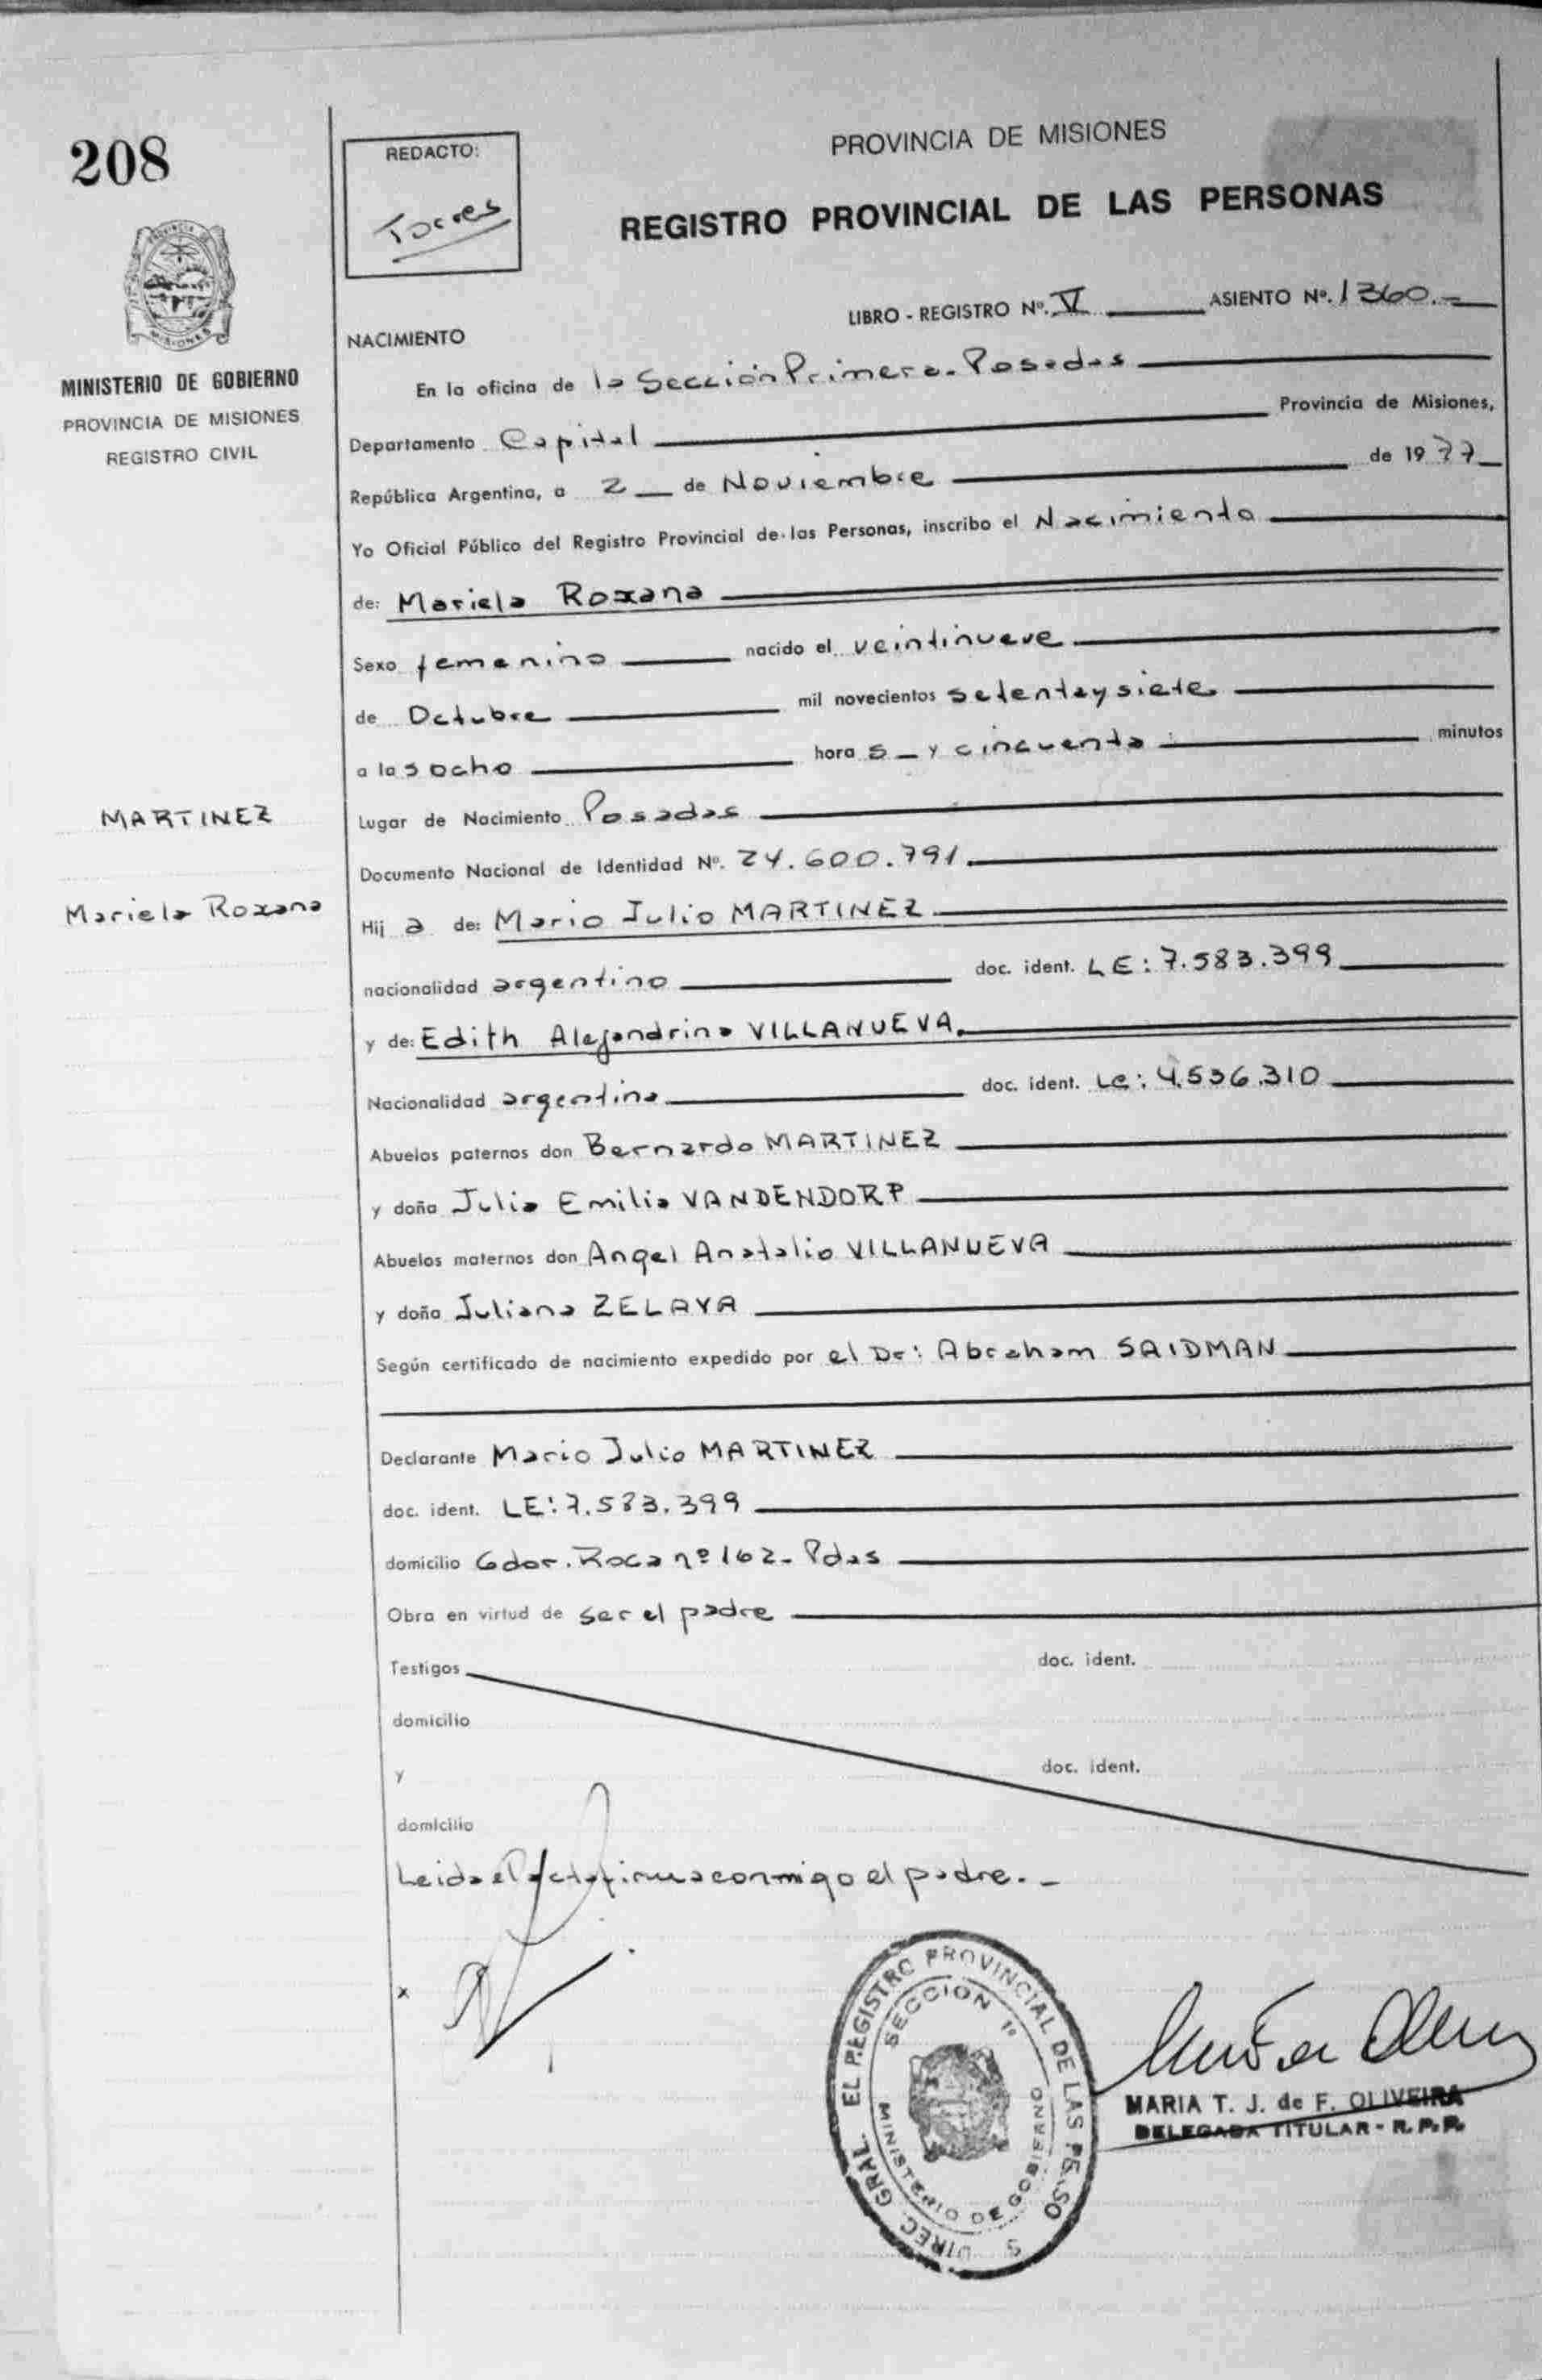 208
REDACTO:
Torres
PROVINCIA DE MISIONES
REGISTRO PROVINCIAL DE LAS PERSONAS
PROVINCIA DE
MISIONES
MINISTERIO DE GOBIERNO
PROVINCIA DE MISIONES
REGISTRO CIVIL
LIBRO - REGISTRO Nº. V ASIENTO Nº. 1360.-
NACIMIENTO
En la oficina de la Sección Primera - Posadas
Departamento Capital Provincia de Misiones,
República Argentina, a 2 de Noviembre de 1977
Yo Oficial Público del Registro Provincial de las Personas, inscribo el Nacimiento
de: Mariela Roxana
Sexo femenino nacido el veintinueve
de Octubre mil novecientos setenta y siete
a las ocho horas y cincuenta minutos
MARTINEZ
Mariela Roxana
Lugar de Nacimiento Posadas
Documento Nacional de Identidad Nº. 24.600.791.
Hija de: Mario Julio MARTINEZ
nacionalidad argentino doc. ident. LE: 7.583.399
y de: Edith Alejandrina VILLANUEVA.
Nacionalidad argentina doc. ident. Lc: 4.536.310
Abuelos paternos don Bernardo MARTINEZ
y doña Julia Emilia VANDENDORP
Abuelos maternos don Angel Anatalio VILLANUEVA
y doña Juliana ZELAYA
Según certificado de nacimiento expedido por el Dr: Abraham SAIDMAN
Declarante Mario Julio MARTINEZ
doc. ident. LE: 7.583.399
domicilio Gdor. Roca nº 162- Pdas
Obra en virtud de ser el padre
Testigos doc. ident.
domicilio
y doc. ident.
domicilio
Leida el acta firma conmigo el padre.-
x
DIREC. GRAL. EL REGISTRO PROVINCIAL DE LAS
SECCION 1ª
MINISTERIO DE GOBIERNO
MARIA T. J. de F. OLIVEIRA
DELEGADA TITULAR - R. P. P.